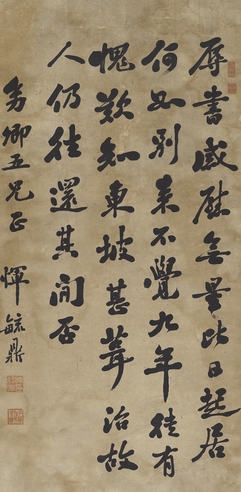 辱書感慰無量比日起居
何如別來不覺九年徒有
愧歎知東坡甚葺治故
人仍往還其間否
勇卿五兄正
惲毓鼎